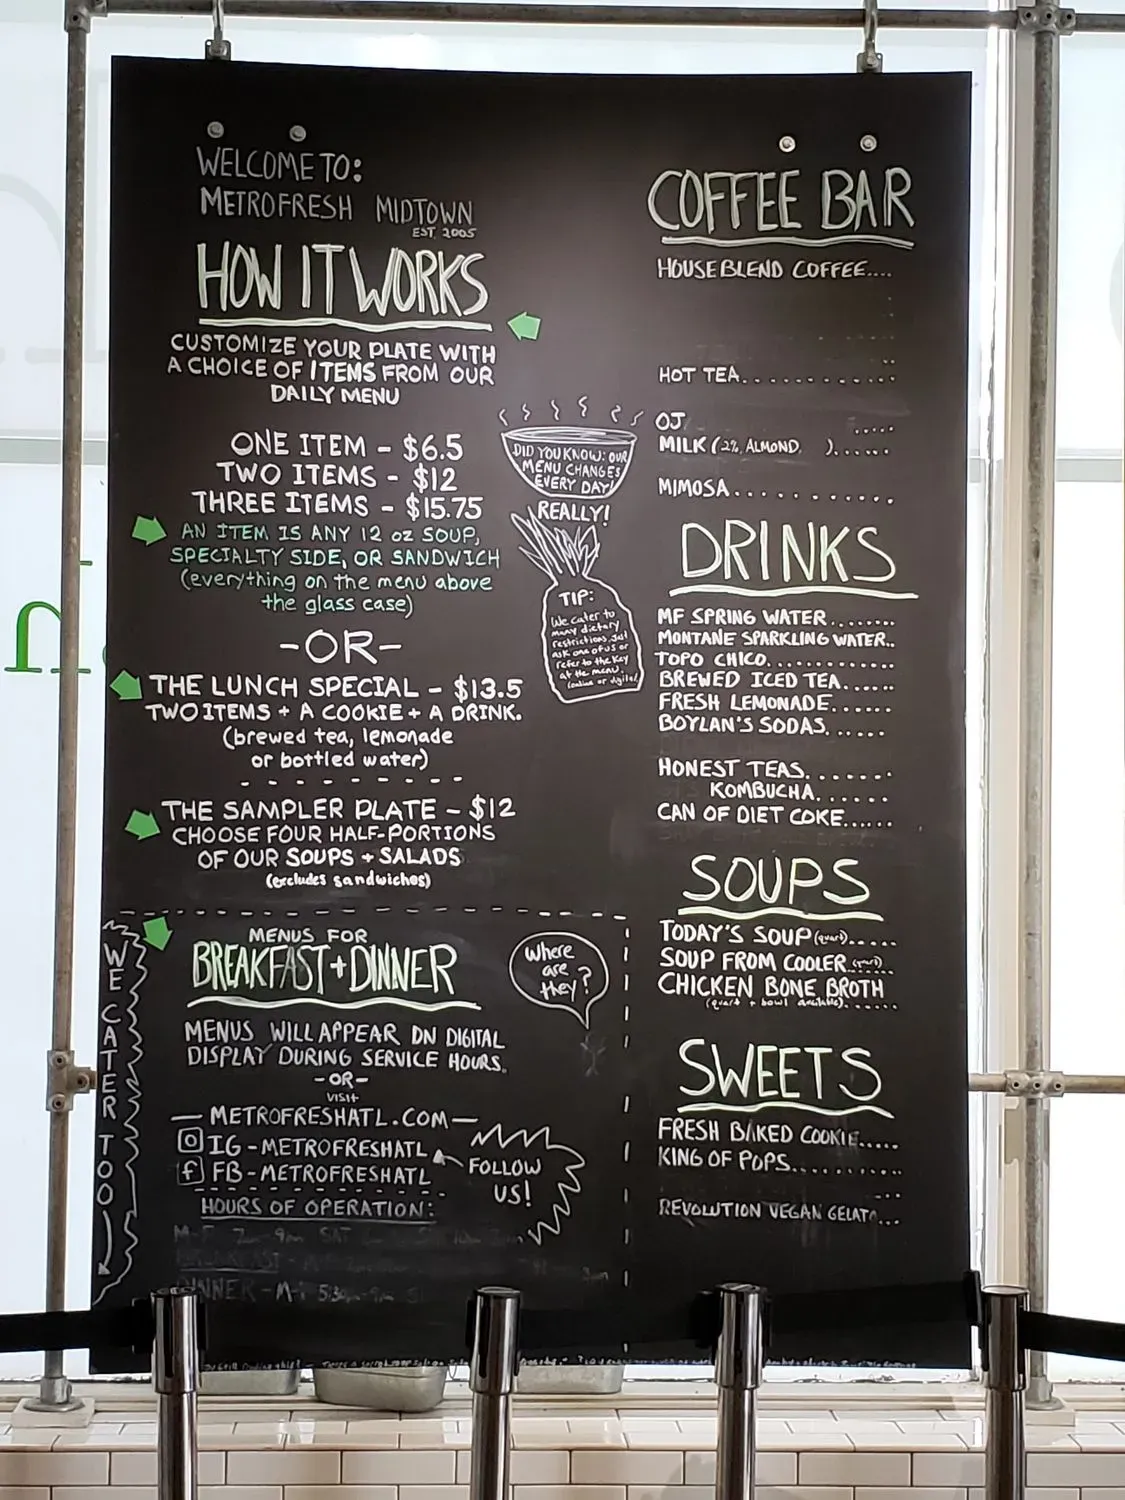 WELCOME TO:
METROFRESH MIDTOWN
EST. 2005
HOW IT WORKS
CUSTOMIZE YOUR PLATE WITH
A CHOICE OF ITEMS FROM OUR
DAILY MENU
ONE ITEM - $6.5
TWO ITEMS - $12
THREE ITEMS - $15.75
AN ITEM IS ANY 12 oz SOUP,
SPECIALTY SIDE, OR SANDWICH
(everything on the menu above
the glass case)
-OR-
THE LUNCH SPECIAL - $13.5
TWO ITEMS + A COOKIE + A DRINK.
(brewed tea, lemonade
or bottled water)
THE SAMPLER PLATE - $12
CHOOSE FOUR HALF-PORTIONS
OF OUR SOUPS + SALADS
(excludes sandwiches)
DID YOU KNOW: OUR
MENU CHANGES
EVERY DAY!
REALLY!
TIP:
We cater to
many dietary
restrictions. Just
ask one of us or
refer to the key
at the menu.
(online or digital)
WE CATER TOO
MENUS FOR
BREAKFAST + DINNER
Where
are
they?
MENUS WILL APPEAR ON DIGITAL
DISPLAY DURING SERVICE HOURS.
-OR-
VISIT
- METROFRESHATL.COM -
IG - METROFRESHATL
FB - METROFRESHATL
FOLLOW
US!
HOURS OF OPERATION:
DINNER - M-
COFFEE BAR
HOUSE BLEND COFFEE....
HOT TEA............
OJ .....
MILK (2% ALMOND ).......
MIMOSA............
DRINKS
MF SPRING WATER........
MONTANE SPARKLING WATER..
TOPO CHICO............
BREWED ICED TEA......
FRESH LEMONADE.......
BOYLAN'S SODAS. .....
HONEST TEAS.......
KOMBUCHA......
CAN OF DIET COKE......
SOUPS
TODAY'S SOUP (quart).....
SOUP FROM COOLER (quart)
CHICKEN BONE BROTH
(quart + bowl available).......
SWEETS
FRESH BAKED COOKIE.....
KING OF POPS..........
REVOLUTION VEGAN GELATO...